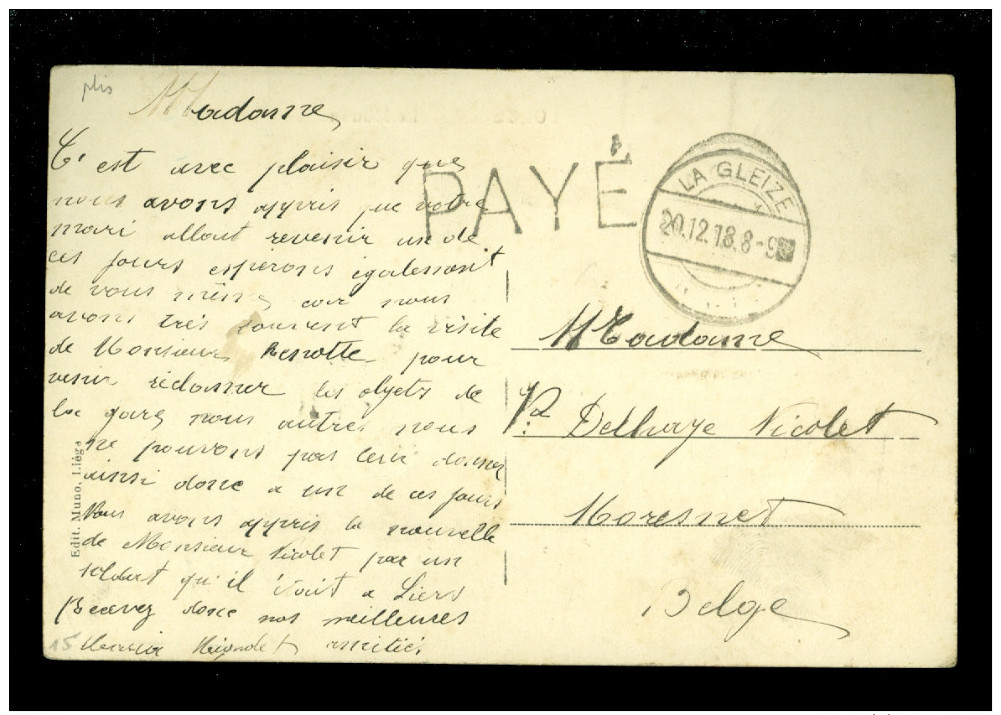 plis
Madame
C'est avec plaisir que
nous avons appris que votre
mari allait revenir un de
ces jours espérons également
de vous même car nous
avons très souvent la visite
de Monsieur pour
venir rédamer les objets de
la gare nous autres nous
ne pouvons pas leur donner
ainsi donc a un de ces jours
Nous avons appris la nouvelle
de Monsieur Nicolet par un
soldat qu'il était a Liers
Recevez donc nos meilleures
amitiés
15
Edit. Muno, Liége
PAYÉ
LA GLEIZE
20.12.18.8-9
Madame
Delhaye Nicolet
Moresnet
Belge